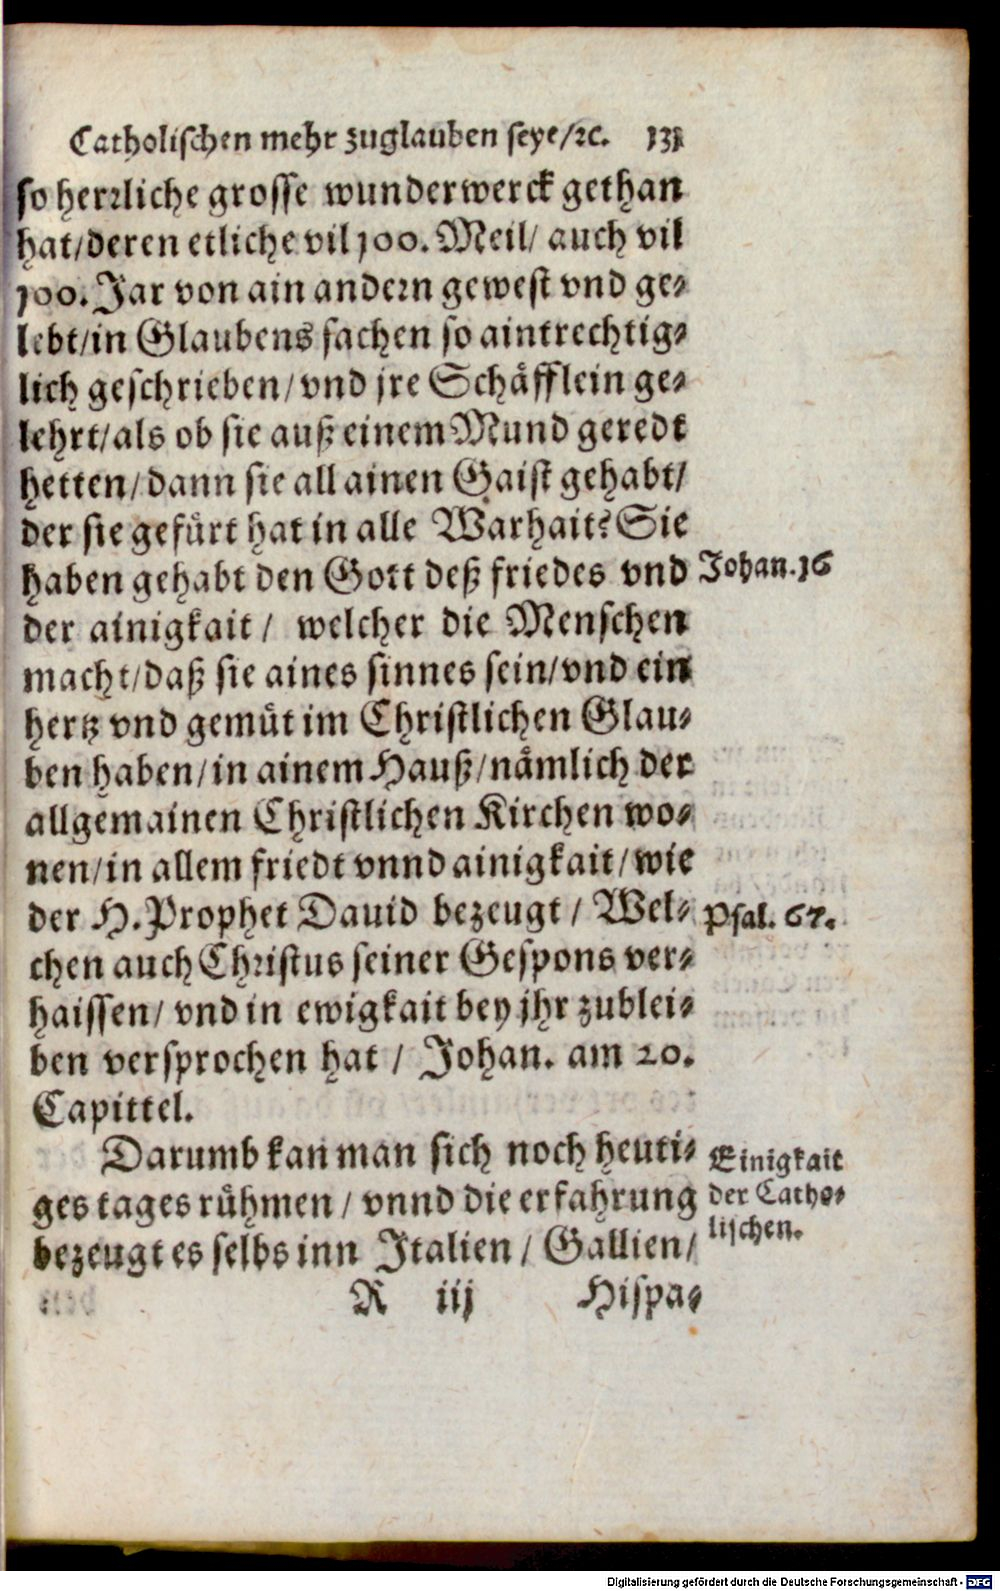 Catholischen mehr zuglauben seye/ꝛc. 131
so herꝛliche grosse wunderwerck gethan
hat/deren etliche vil 100. Meil/ auch vil
100. Jar von ain andern gewest vnd ge⸗
lebt/in Glaubens sachen so aintrechtig⸗
lich geschrieben/vnd jre Schäfflein ge⸗
lehrt/als ob sie auß einem Mund geredt
hetten/dann sie all ainen Gaist gehabt/
der sie gefürt hat in alle Warhait? Sie
haben gehabt den Gott deß friedes vnd
Johan.16
der ainigkait / welcher die Menschen
macht/daß sie aines sinnes sein/vnd ein
hertz vnd gemüt im Christlichen Glau⸗
ben haben/in ainem Hauß/nämlich der
allgemainen Christlichen Kirchen wo⸗
nen/in allem friedt vnnd ainigkait/wie
der H. Prophet Dauid bezeugt / Wel⸗
Psal. 67.
chen auch Christus seiner Gespons ver⸗
haissen/ vnd in ewigkait bey jhr zublei⸗
ben versprochen hat / Johan. am 20.
Capittel.
Darumb kan man sich noch heuti⸗
ges tages rühmen / vnnd die erfahrung
bezeugt es selbs inn Italien / Gallien/
Einigkait
der Catho⸗
lischen.
R iij Hispa⸗
Digitalisierung gefördert durch die Deutsche Forschungsgemeinschaft - DFG